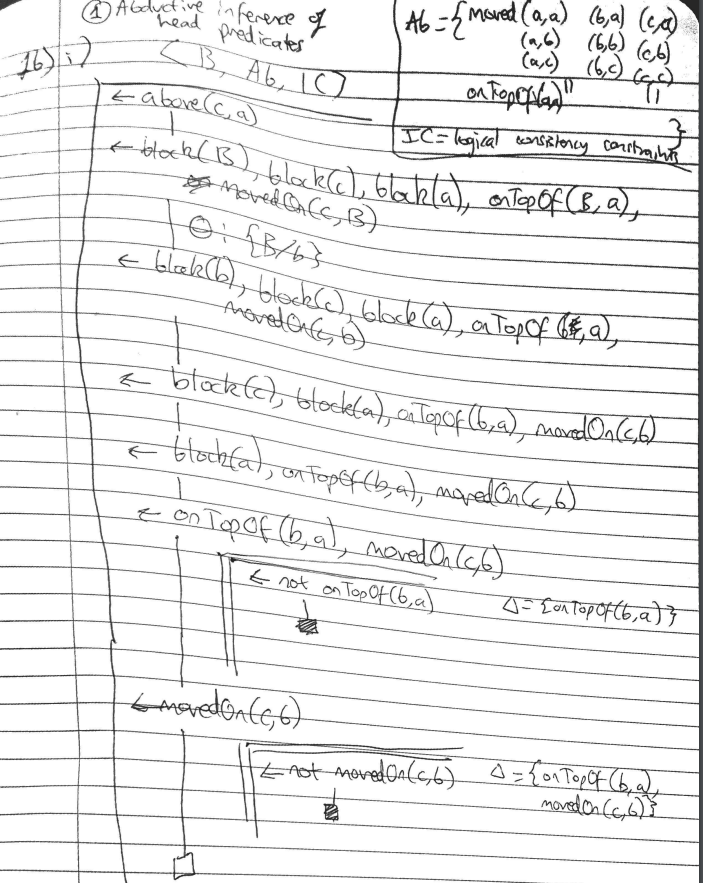 ① Abductive inference of
head predicates
Ab = { moved (a,a) (b,a) (c,a)
(a,b) (b,b) (c,b)
(a,c) (b,c) (c,c)
onTopOf(a,a) " "
}
IC = logical consistency constraints
1b) i) < B, Ab, IC >
← above(c,a)
← block(B), block(c), block(a), onTopOf(B,a),
movedOn(c,B)
Θ: {B/b}
← block(b), block(c), block(a), onTopOf(b,a),
movedOn(c,b)
← block(c), block(a), onTopOf(b,a), movedOn(c,b)
← block(a), onTopOf(b,a), movedOn(c,b)
← onTopOf(b,a), movedOn(c,b)
← not onTopOf(b,a) Δ = {onTopOf(b,a)}
← movedOn(c,b)
← not movedOn(c,b) Δ = {onTopOf(b,a),
movedOn(c,b)}